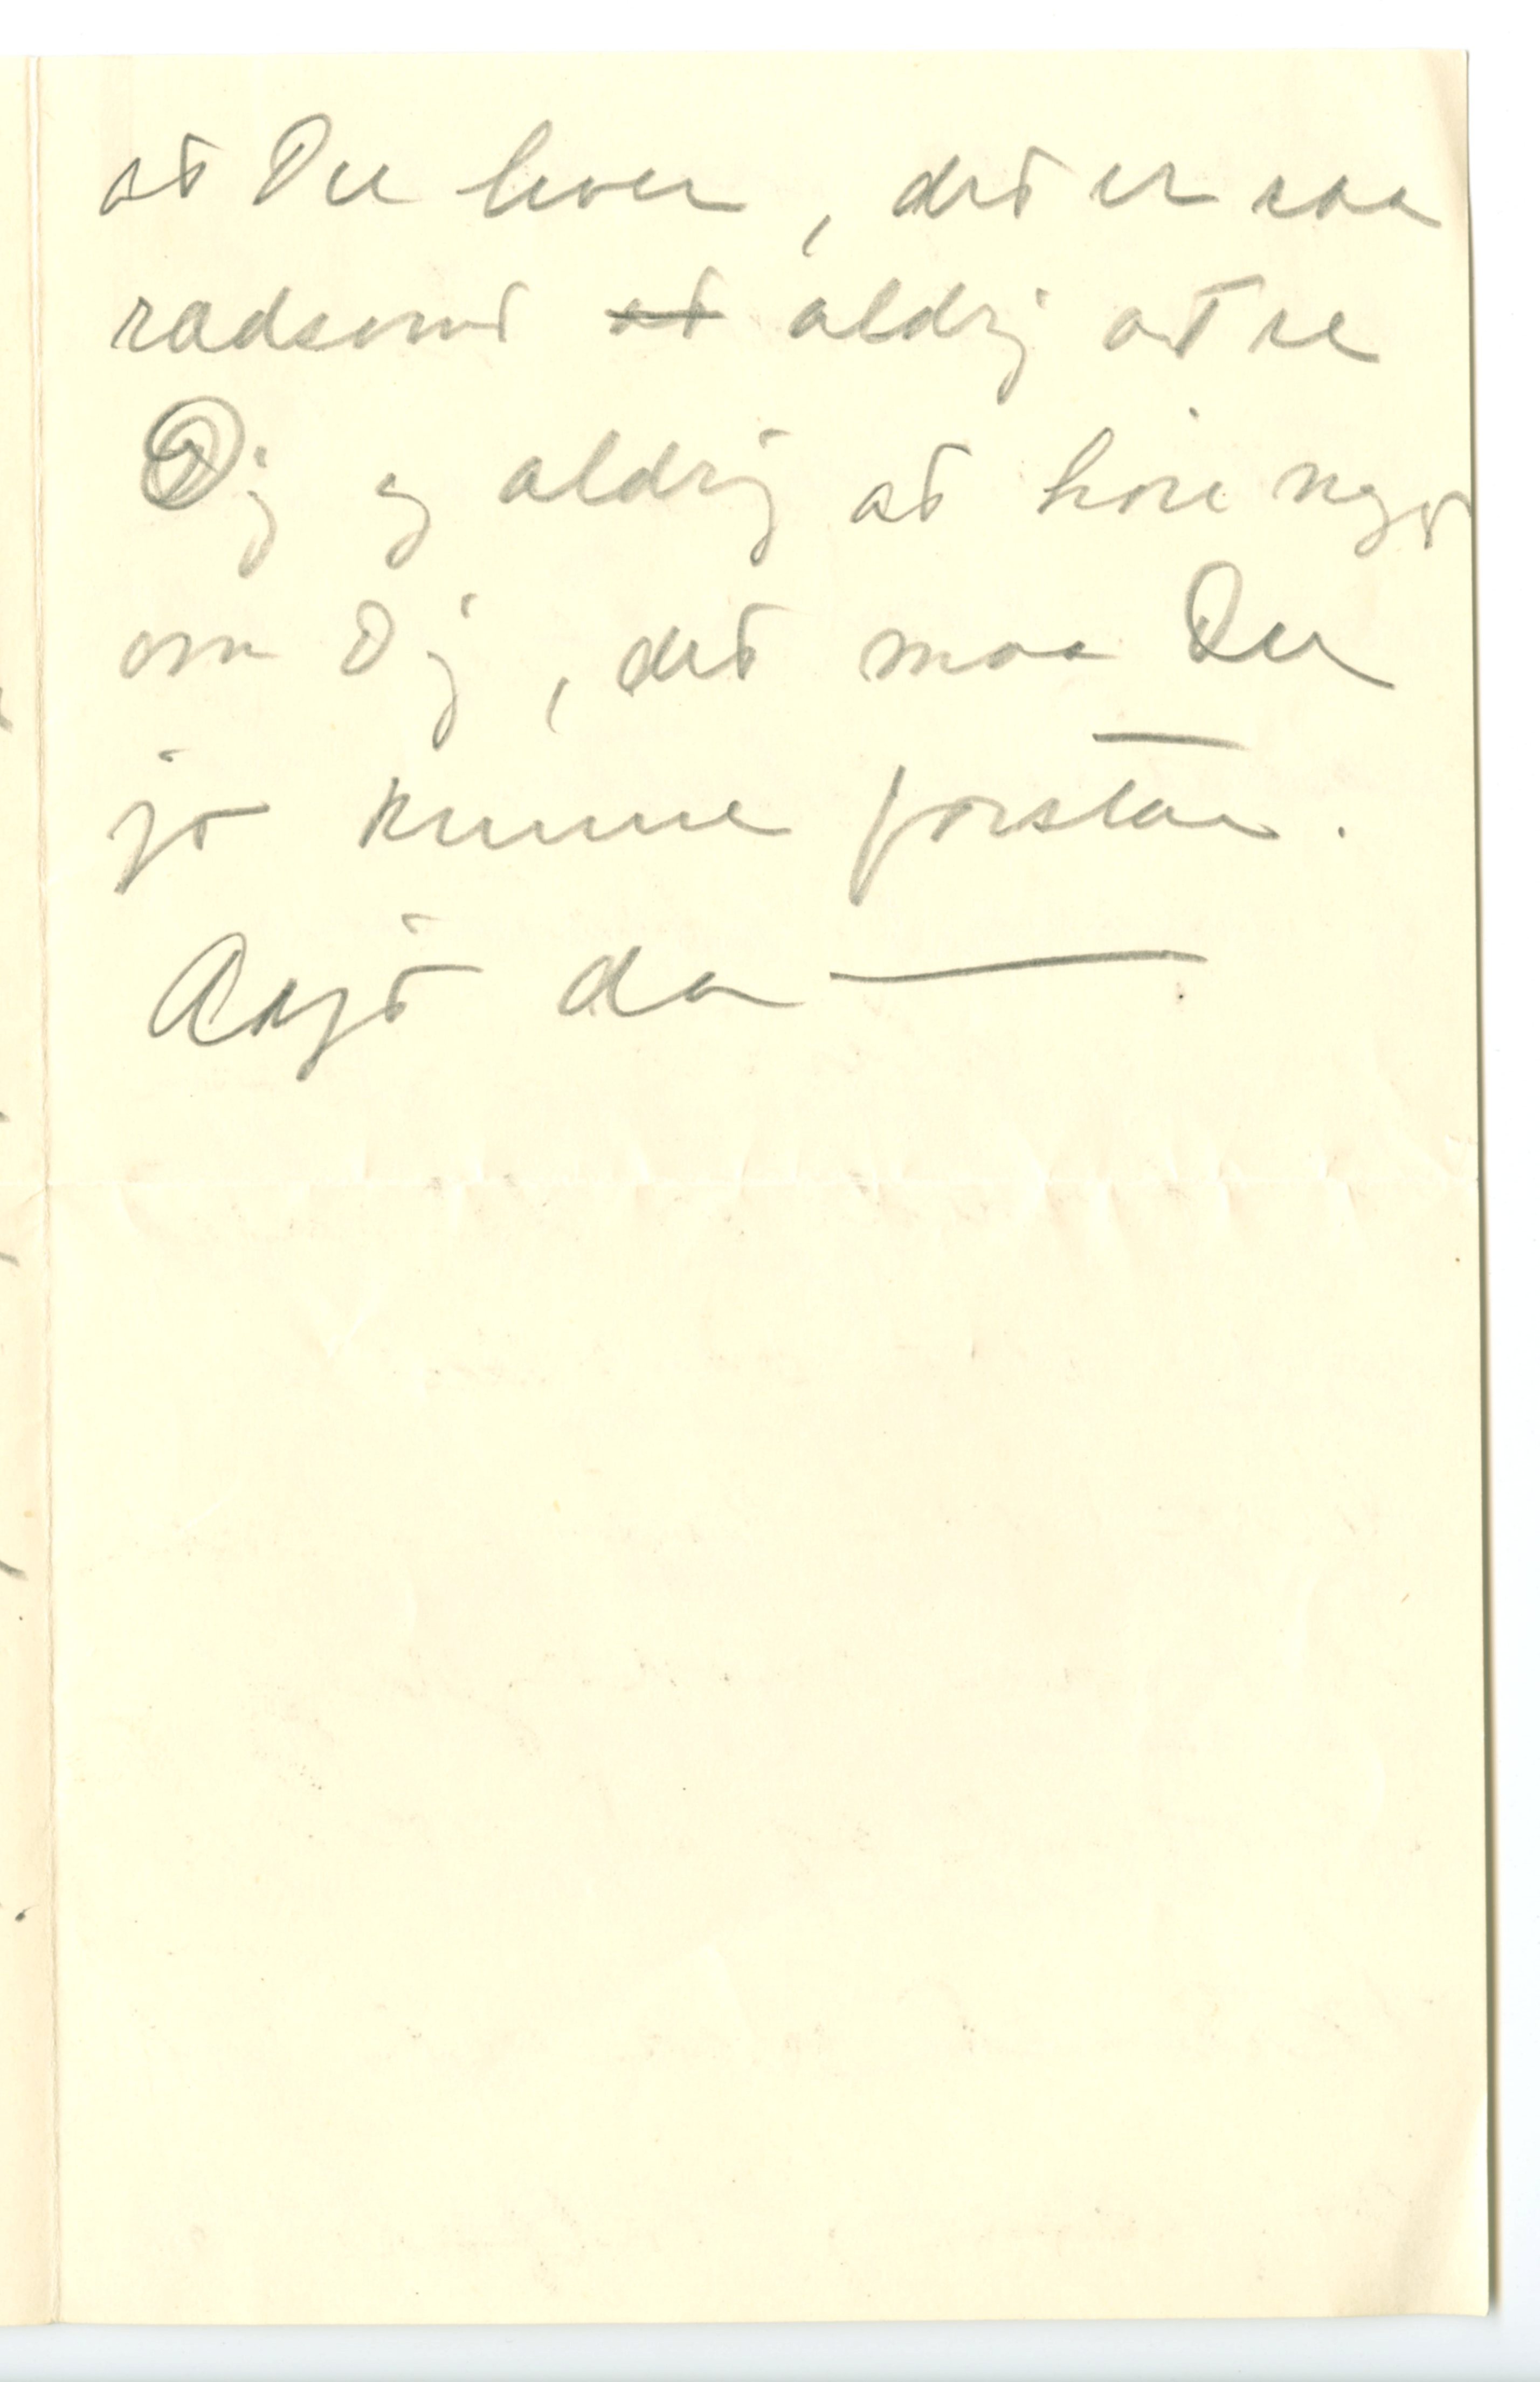 at Du lever, det er saa
radsomt at aldrig at se
Dig og aldrig at høre noget
om Dig, det maa Du
jo kunne forstaa.
Asjø da —